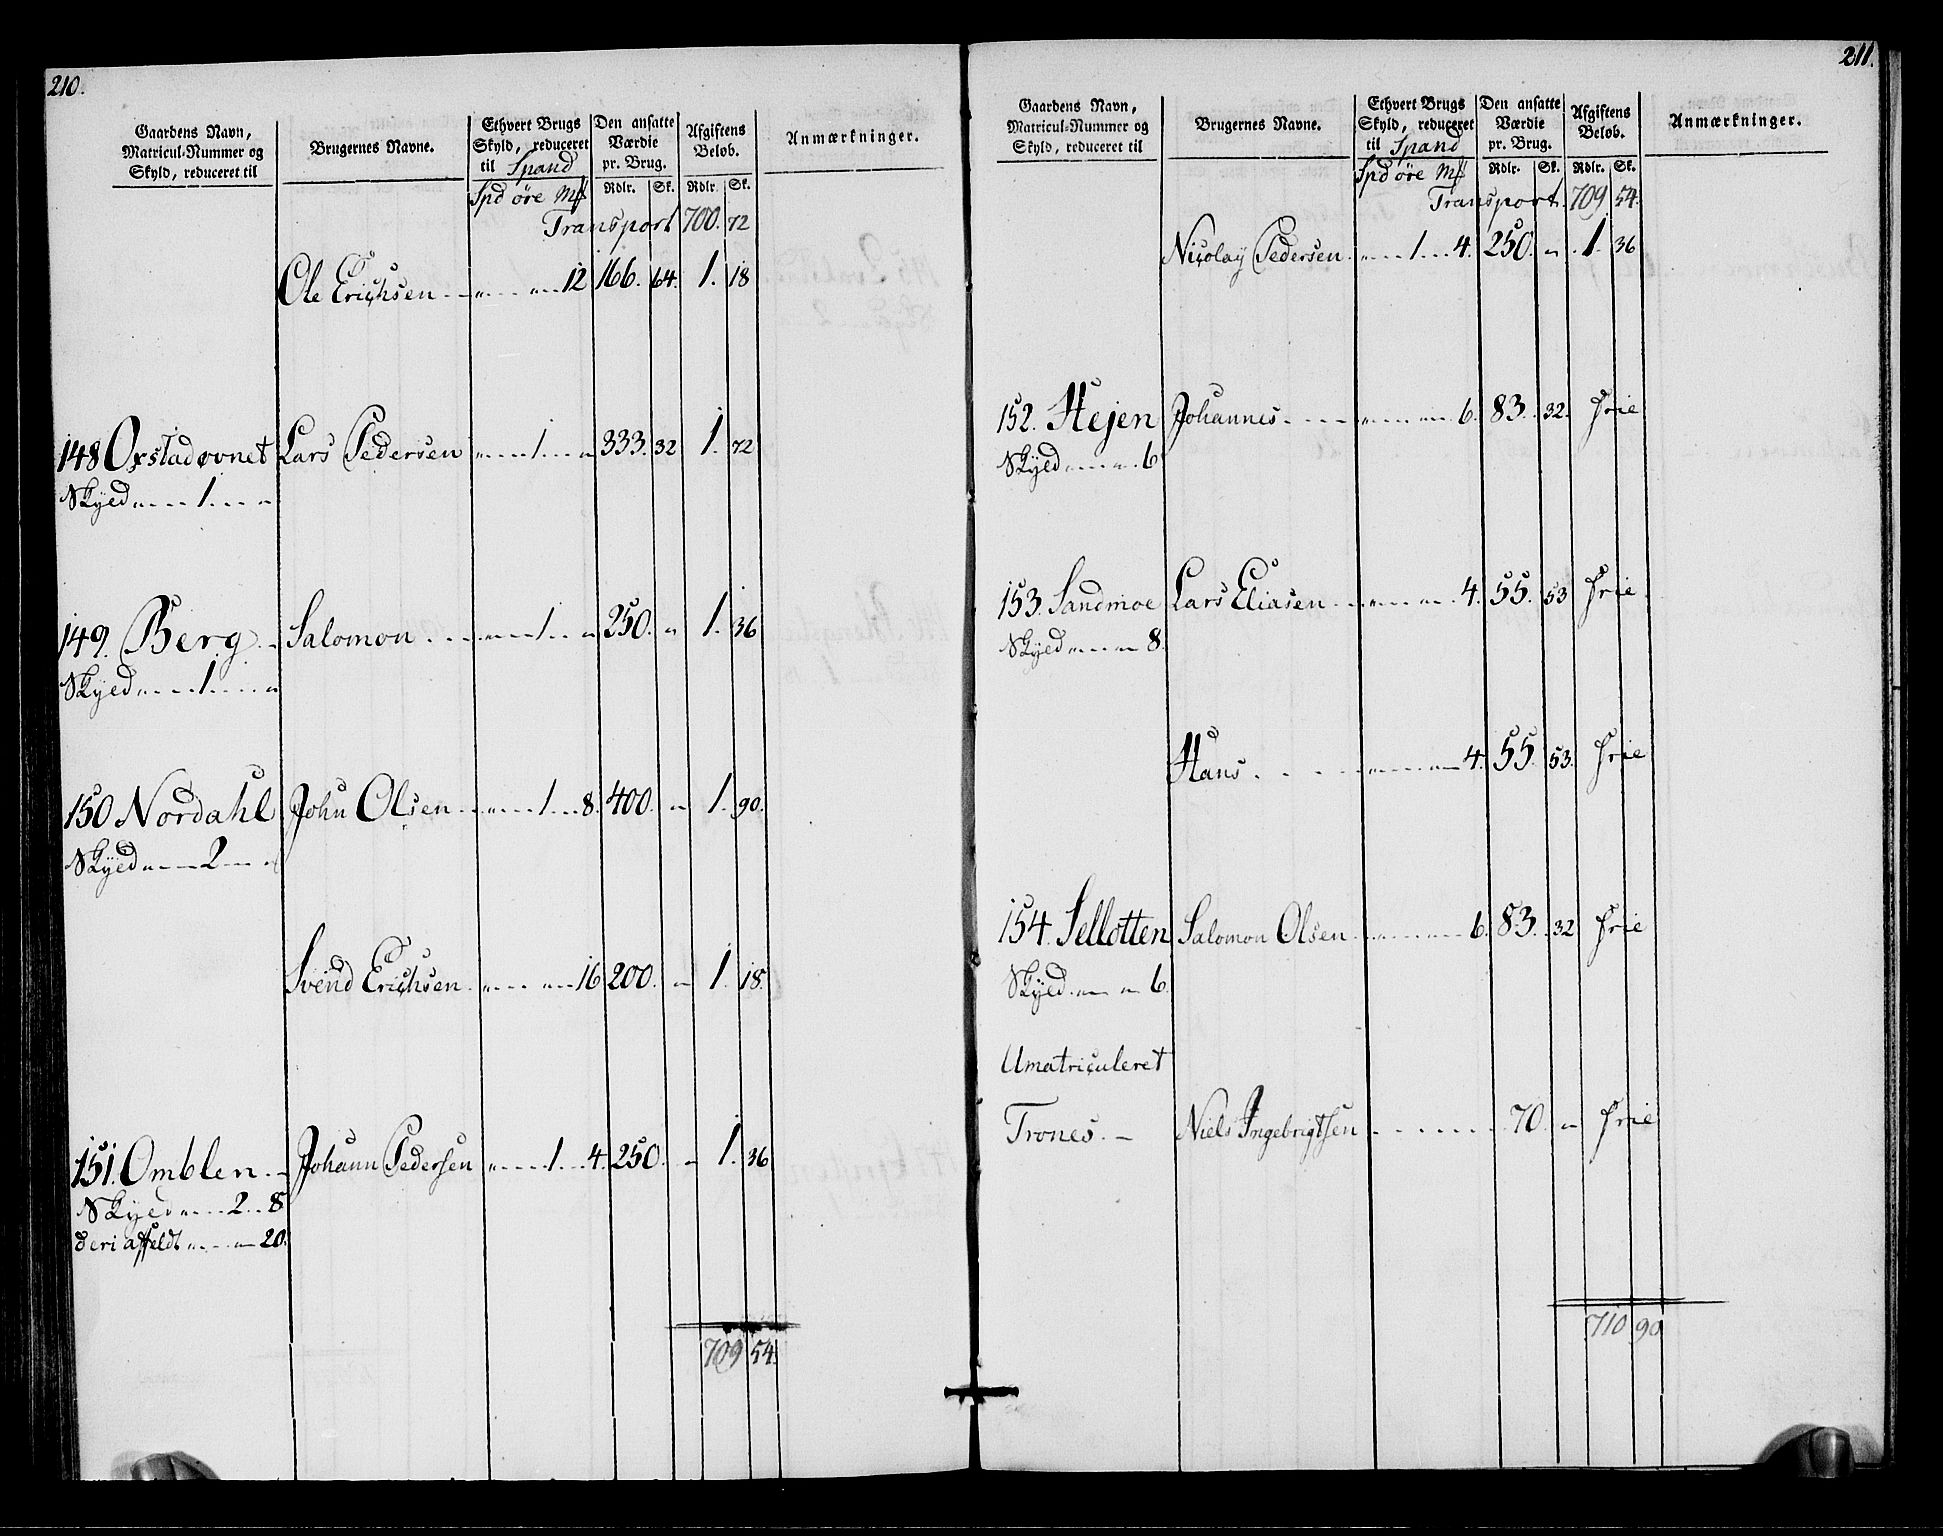 210.
Gaardens Navn, Matricul-Nummer og Skyld, reduceret til | Brugernes Navne. | Ethvert Brugs Skyld, reduceret til Spand | Den ansatte Værdie pr. Brug. | Afgiftens Beløb. | Anmærkninger.
Spd øre Mk | Rdlr. | Sk. | Rdlr. | Sk.
Transport 700. 72
Ole Erichsen - - „ - - - „ - 12 166. 64. 1. 18
148 Oxstadøvnet Lars Pedersen „ - - 1. - - „ 333. 32 1. 72
Skyld „ - - - 1. - - - „
149. Berg - Salomon . - - „ - - 1. - - „ 250. „ 1. 36
Skyld „ - - - 1. - - - „
150 Nordahl John Olsen - - „ - - 1. - - 8. 400. „ 1. 90.
Skyld „ - - - 2 - - „
Svend Erichsen. „ - - - „ - 16 200. „ 1. 18.
151. Omblen. - Johann Pedersen „ - - - 1. - - 4. 250. „ 1. 36
Skyld „ - - - 2. - 8
deri affeldt „ - - „ - 20.
709 54.
211.
Gaardens Navn, Matricul-Nummer og Skyld, reduceret til | Brugernes Navne. | Ethvert Brugs Skyld, reduceret til Spand | Den ansatte Værdie pr. Brug. | Afgiftens Beløb. | Anmærkninger.
Spd øre Mk | Rdlr. | Sk. | Rdlr. | Sk.
Transport. 709 54.
Nicolay Pedersen. „ - - 1. - - 4. 250. „ 1. 36
152. Hejen Johannes - - - „ - - „ - 6. 83. 32. frie
Skyld „ - - - „ 6.
153. Sandmoe Lars Eliasen - - „ - - „ - 4. 55. 53 frie
Skyld „ - - - „ 8.
Hans. - - - „ - - „ - 4. 55. 53. frie
154. Sellotten Salomon Olsen - - - „ - 6. 83. 32 frie
Skyld. „ - - „ 6.
Umatriculeret
Trones. - Niels Ingebrigtsen - - - - - - 70. „ frie
710 90